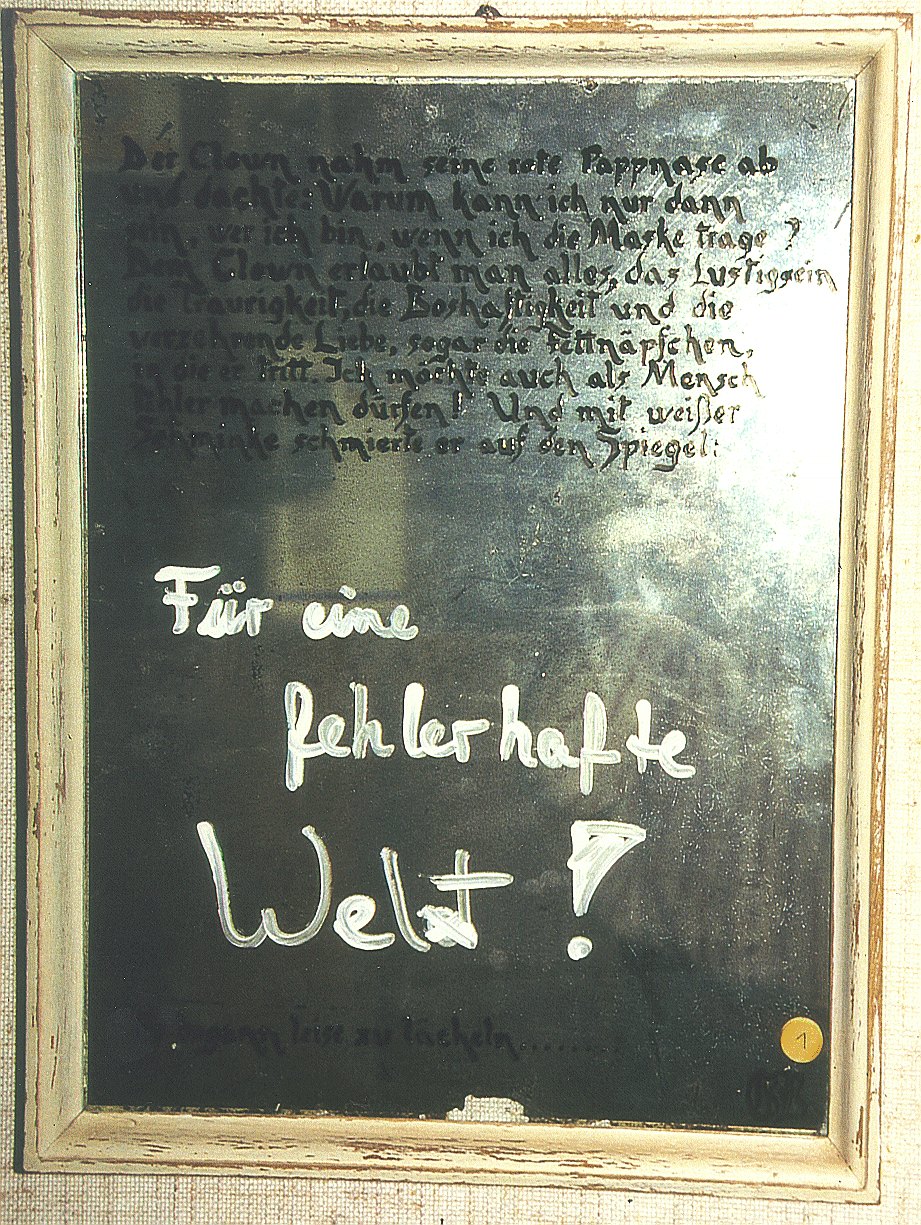 Der Clown nahm seine rote Pappnase ab
und dachte: Warum kann ich nur dann
sein, wer ich bin, wenn ich die Maske trage?
Dem Clown erlaubt man alles, das Lustigsein
die Traurigkeit, die Boshaftigkeit und die
verzehrende Liebe, sogar die Fettnäpfchen,
in die er tritt. Ich möchte auch als Mensch
Fehler machen dürfen! Und mit weißer
Schminke schmierte er auf den Spiegel:
Für eine
fehlerhafte
Welt!
begann leise zu lächeln.........
1